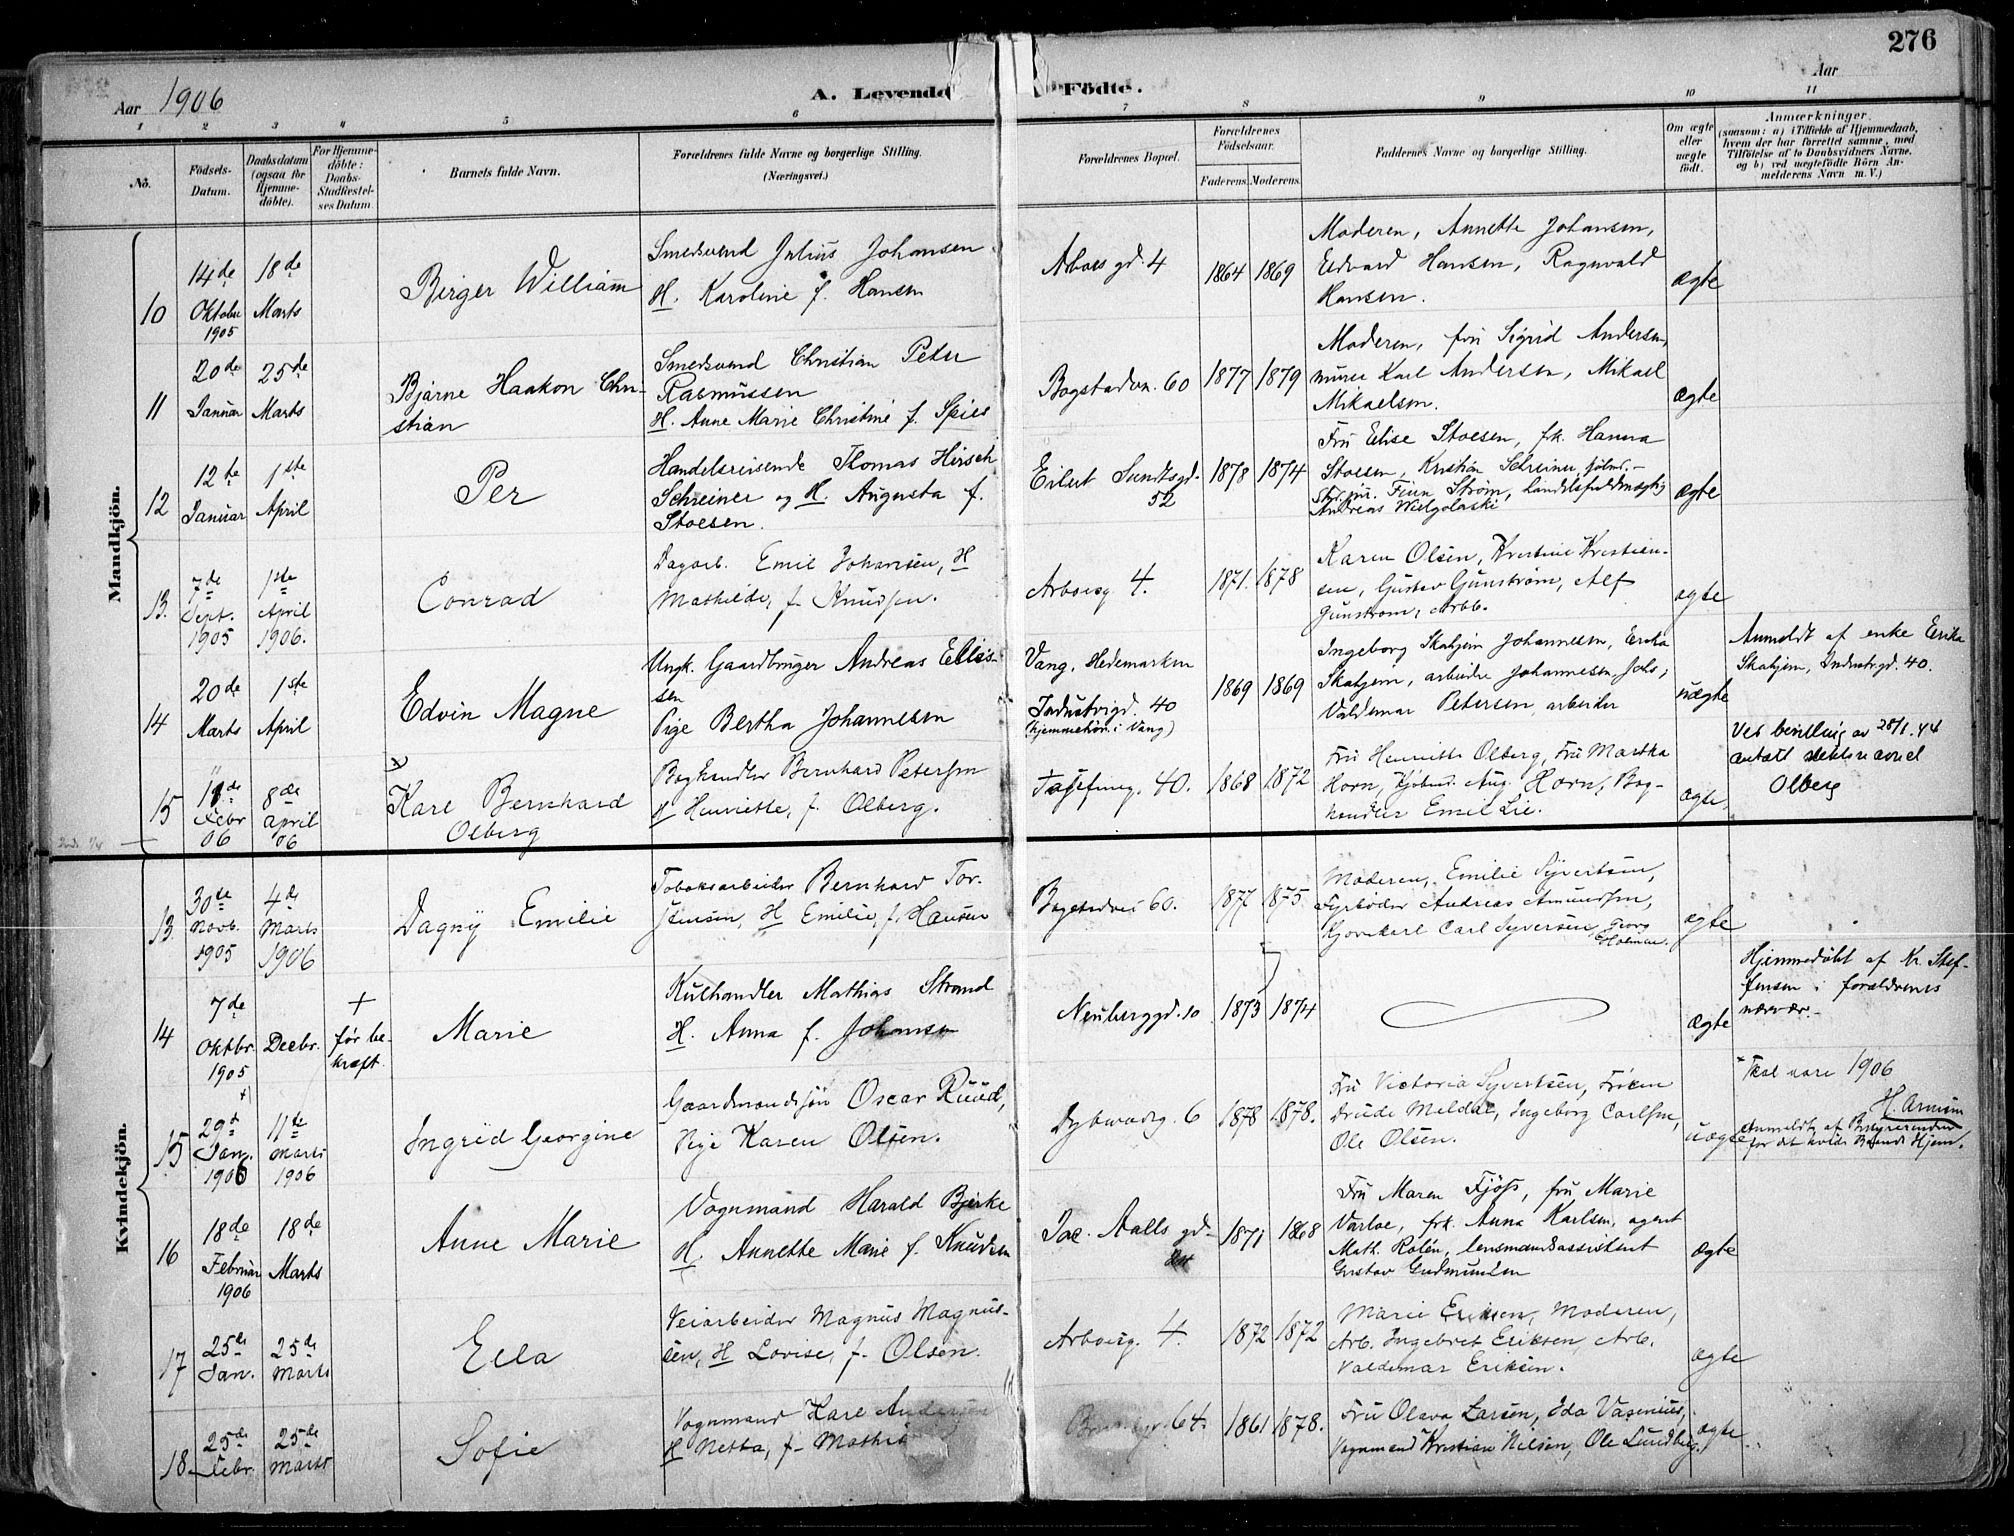 276
Aar 1906
A. Levende Födte.
Aar
1 2 3 4 5 6 7 8 9 10 11
No.
Födsels-Datum.
Daabsdatum (ogsaa for Hjemme-döbte).
For Hjemme-döbte: Daabs-Stadfæstel-ses Datum.
Barnets fulde Navn.
Forældrenes fulde Navne og borgerlige Stilling. (Næringsvei.)
Forældrenes Bopæl.
Forældrenes Födselsaar.
Faderens. Moderens.
Faddernes Navne og borgerlige Stilling.
Om ægte eller uægte födt.
Anmærkninger.
(saasom: a) i Tilfælde af Hjemmedaab,
hvem der har forrettet samme, med
Tilföielse af to Daabsvidners Navne,
og b) ved uægtefödte Börn An-
melderens Navn m. V.)
Mandkjön.
10
14de Oktober 1905
18de Marts
Birger William
Smedsvend Julius Johansen
H. Karoline f. Hansen
Arboes gd. 4
1864 1869
Moderen, Annette Johansen,
Edvard Hansen, Ragnvald
Hansen.
ægte
11
20de Januar
25de Marts
Bjarne Haakon Chri-
stian
Smedsvend Christian Peter
Rasmussen
H. Anne Marie Christine f. Spies
Bogstadvn. 60
1877 1879
Moderen, fru Sigrid Andersen,
murer Karl Andersen, Mikael
Mikaelsen.
ægte
12
12te Januar
1ste April
Per
Handelsreisende Thomas Hirsch
Schreiner og H. Augusta f.
Stoesen.
Eilert Sundtsgd.
52
1878 1874
Fru Elise Stoesen, fk. Hanna
Stoesen, Kristian Schreiner, kjøbmd. –
Stud. jur. Finn Strøm, handelsfuldmægtig
Andreas Wielgolaski
ægte
13.
7de Sept. 1905
1ste April 1906.
Conrad
Dagarb. Emil Johansen, H
Mathilde, f. Knudsen.
Arboesg 4.
1871. 1878
Karen Olsen, Kristine Kristian-
sen, Gustav Gunstrøm, Alf
Gunstrøm, Arbb.
ægte
14
20de Marts
1ste April
Edvin Magne
Ungk. Gaardbruger Andreas Ellis-
sen
Pige Bertha Johannesen
Vang, Hedemarken
Industrigd. 40
(hjemmehør. i Vang)
1869 1869
Ingeborg Skahjem Johannesen, Erika
Skahjem, arbeider Johannesen Johs;
Valdemar Petersen, arbeider
uægte
Anmeldt af enke Erika
Skahjem, Industrigd. 40.
15
11de Febr 06
8de April 06
x
Karl Bernhard
Olberg
Boghandler Bernhard Petersen
H Henriette, f. Olberg.
Tostrupg. 40.
1868 1872
Fru Henriette Olberg, Fru Martha
Horn, Kjøbmd. Aug. Horn, Bog-
handler Emil Lie.
ægte.
Ved bevilling av 28/1. 44
antatt slektsnavnet
Olberg
Kvindekjön.
13.
30te Novb. 1905
4de Marts 1906
Dagny Emilie
Tobaksarbeider Bernhard Tor-
stensen, H Emilie, f. Hansen
Bogstadvei 60.
1877 1875.
Moderen, Emilie Syvertsen,
Fyrbøder Andreas Amundsen,
Kjørekarl Carl Syversen, Georg
Holman.
ægte
14
7de Oktbr. 1905
Decbr.
+
før be-
kræft.
Marie
Kulhandler Mathias Strand
H. Anna f. Johansen
Neuberggd. 10
1873 1874
ægte
Hjemmedøbt af Kr. Stef-
fensen i forældrenes
nærvær.
15
x)
29de Jan. 1906
11te Marts 1906
Ingrid Georgine
Gaardmandssøn Oscar Ruud,
Pige Karen Olsen.
Dybwadsg. 6
1878 1878.
Fru Victoria Syvertsen, Frøken
Trude Meldal, Ingeborg Carlsen,
Ole Olsen.
uægte
x Skal være 1906
Anmeldt af Bestyrerinden
for det hvide Baands Hjem.
16
18de Februar 1906
18de Marts
Anne Marie
Vognmand Harald Bjerke
H. Annette Marie f. Knudsen
Jac. Aalls gd.
1871 1868
Fru Maren Fjøss, fru Marie
Varloe, frk. Anna Karlsen, agent
Math. Rolén, lensmandsassistent
Gustav Gudmundsen
ægte
17
25de Jan.
25de Marts
Ella
Veiarbeider Magnus Magnus-
sen, H Lovise, f. Olsen.
Arboesg. 4.
1872 1872
Marie Eriksen, Moderen,
Arb. Ingebret Eriksen, Arb.
Valdemar Eriksen.
ægte
18
25de Febr.
25de Marts
Sofie
Vognmand Karl Andersen
H Netta, f. Mathis
64.
1861 1878.
Fru Olava Larsen, Eda Vasenius,
Vognmand Kristian Nilsen, Ole Lundberg.
ægte